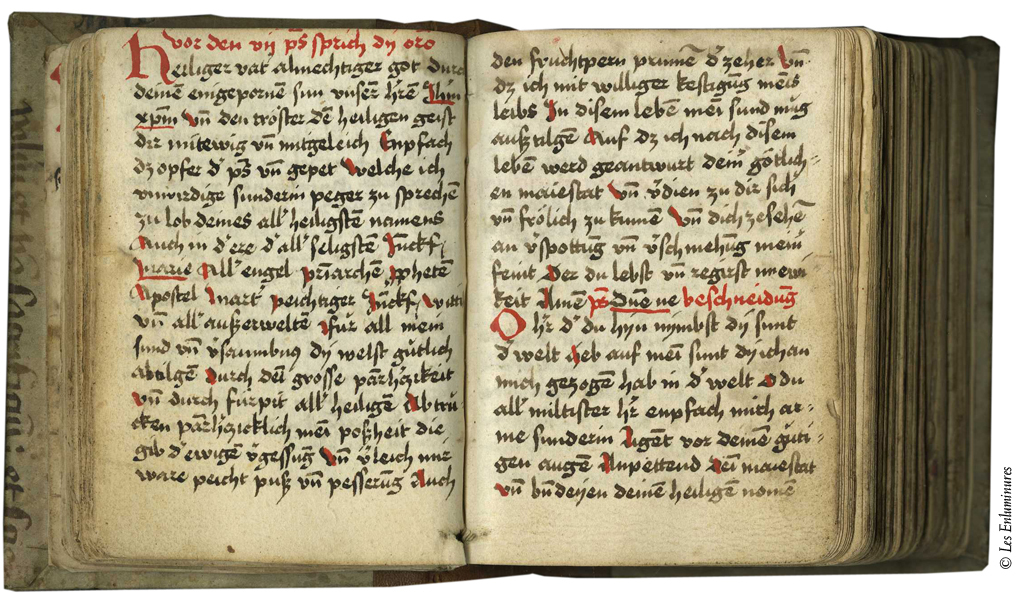 vor den vij ps sprich dy oro
Heiliger vat almechtiger got durch
deinen eingepornē sun vnserē hrēn Jhm
xpm vn̄ den tröster dē heiligen geist
dir mitewig vn̄ mitgeleich Enpfach
dz opfer d' ps vn̄ gepet Welche ich
vnwirdige sunderin peger zu sprechen
zu lob deines all' heiligstē namens
Auch in d' ere d' all' seligstē Junckf
marie All' engel priarchē prophetē
Apostel Mart' peichtiger Junckf Witti
vn̄ all' außerweltē für all mein
sund vn̄ v'saumbnus dy welst gütlich
abtilgē Durch dei grosse parmh'czikeit
vn̄ durch fürpit all' heiligē Abtru
cken parmh'czicklich mei poßheit die
gib d' ewigen v'gessūg Vn̄ v'leich mir
ware peicht puß vn̄ pesserūg Auch
den fruchtpern prunnē d' zeher Vn̄
dz ich mit williger kestigūg meīs
leibs In disem lebē mei sund müg
außtilgē Auf dz ich nach disem
lebē werd geantwurt dem' götlich=
en maiestat Vn̄ v'dien zu dir sich'
vn̄ frölich zu kumē Vn̄ dich zesehē
an v'spottūg vn̄ v'schmehūg mein'
feint Der du lebst vn̄ regirst in ewi
keit Amē ps Dnē ne beschneidūg
O hr d' du hyn nymbst dy sunt
d' welt Heb auf mei sunt dy ich an
mich gezogen hab in d' welt O du
all' miltister hr enpfach mich ar=
me sunderin Ligēt vor deinē güti=
gen augē Anpettend dei maiestat
vn̄ bn̄deyen deinē heiligē nomē
© Les Enluminures